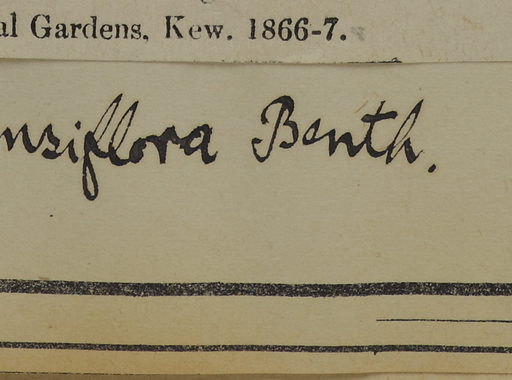 al Gardens, Kew. 1866-7.
nsiflora Benth.